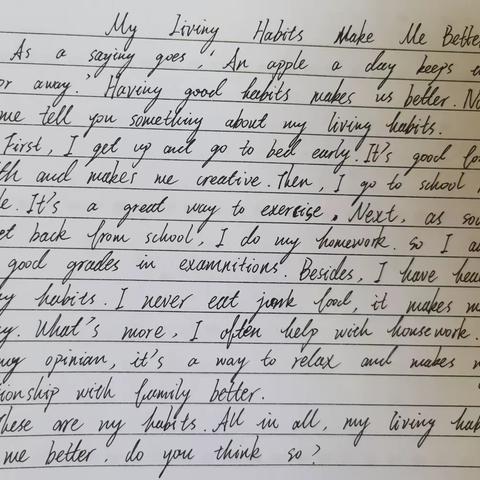 My Living Habits Make Me Better
As a saying goes, 'An apple a day keeps
or away.' Having good habits makes us better.
me tell you something about my living habits.
First, I get up and go to bed early. It's good
and makes me creative. Then, I go to school
It's a great way to exercise. Next, as
back from school, I do my homework. so I
good grades in examnitions. Besides, I have
habits. I never eat junk food, it makes
What's more, I often help with housework.
my opinian, it's a way to relax and makes
ionship with family better.
These are my habits. All in all, my living
me better. do you think so?